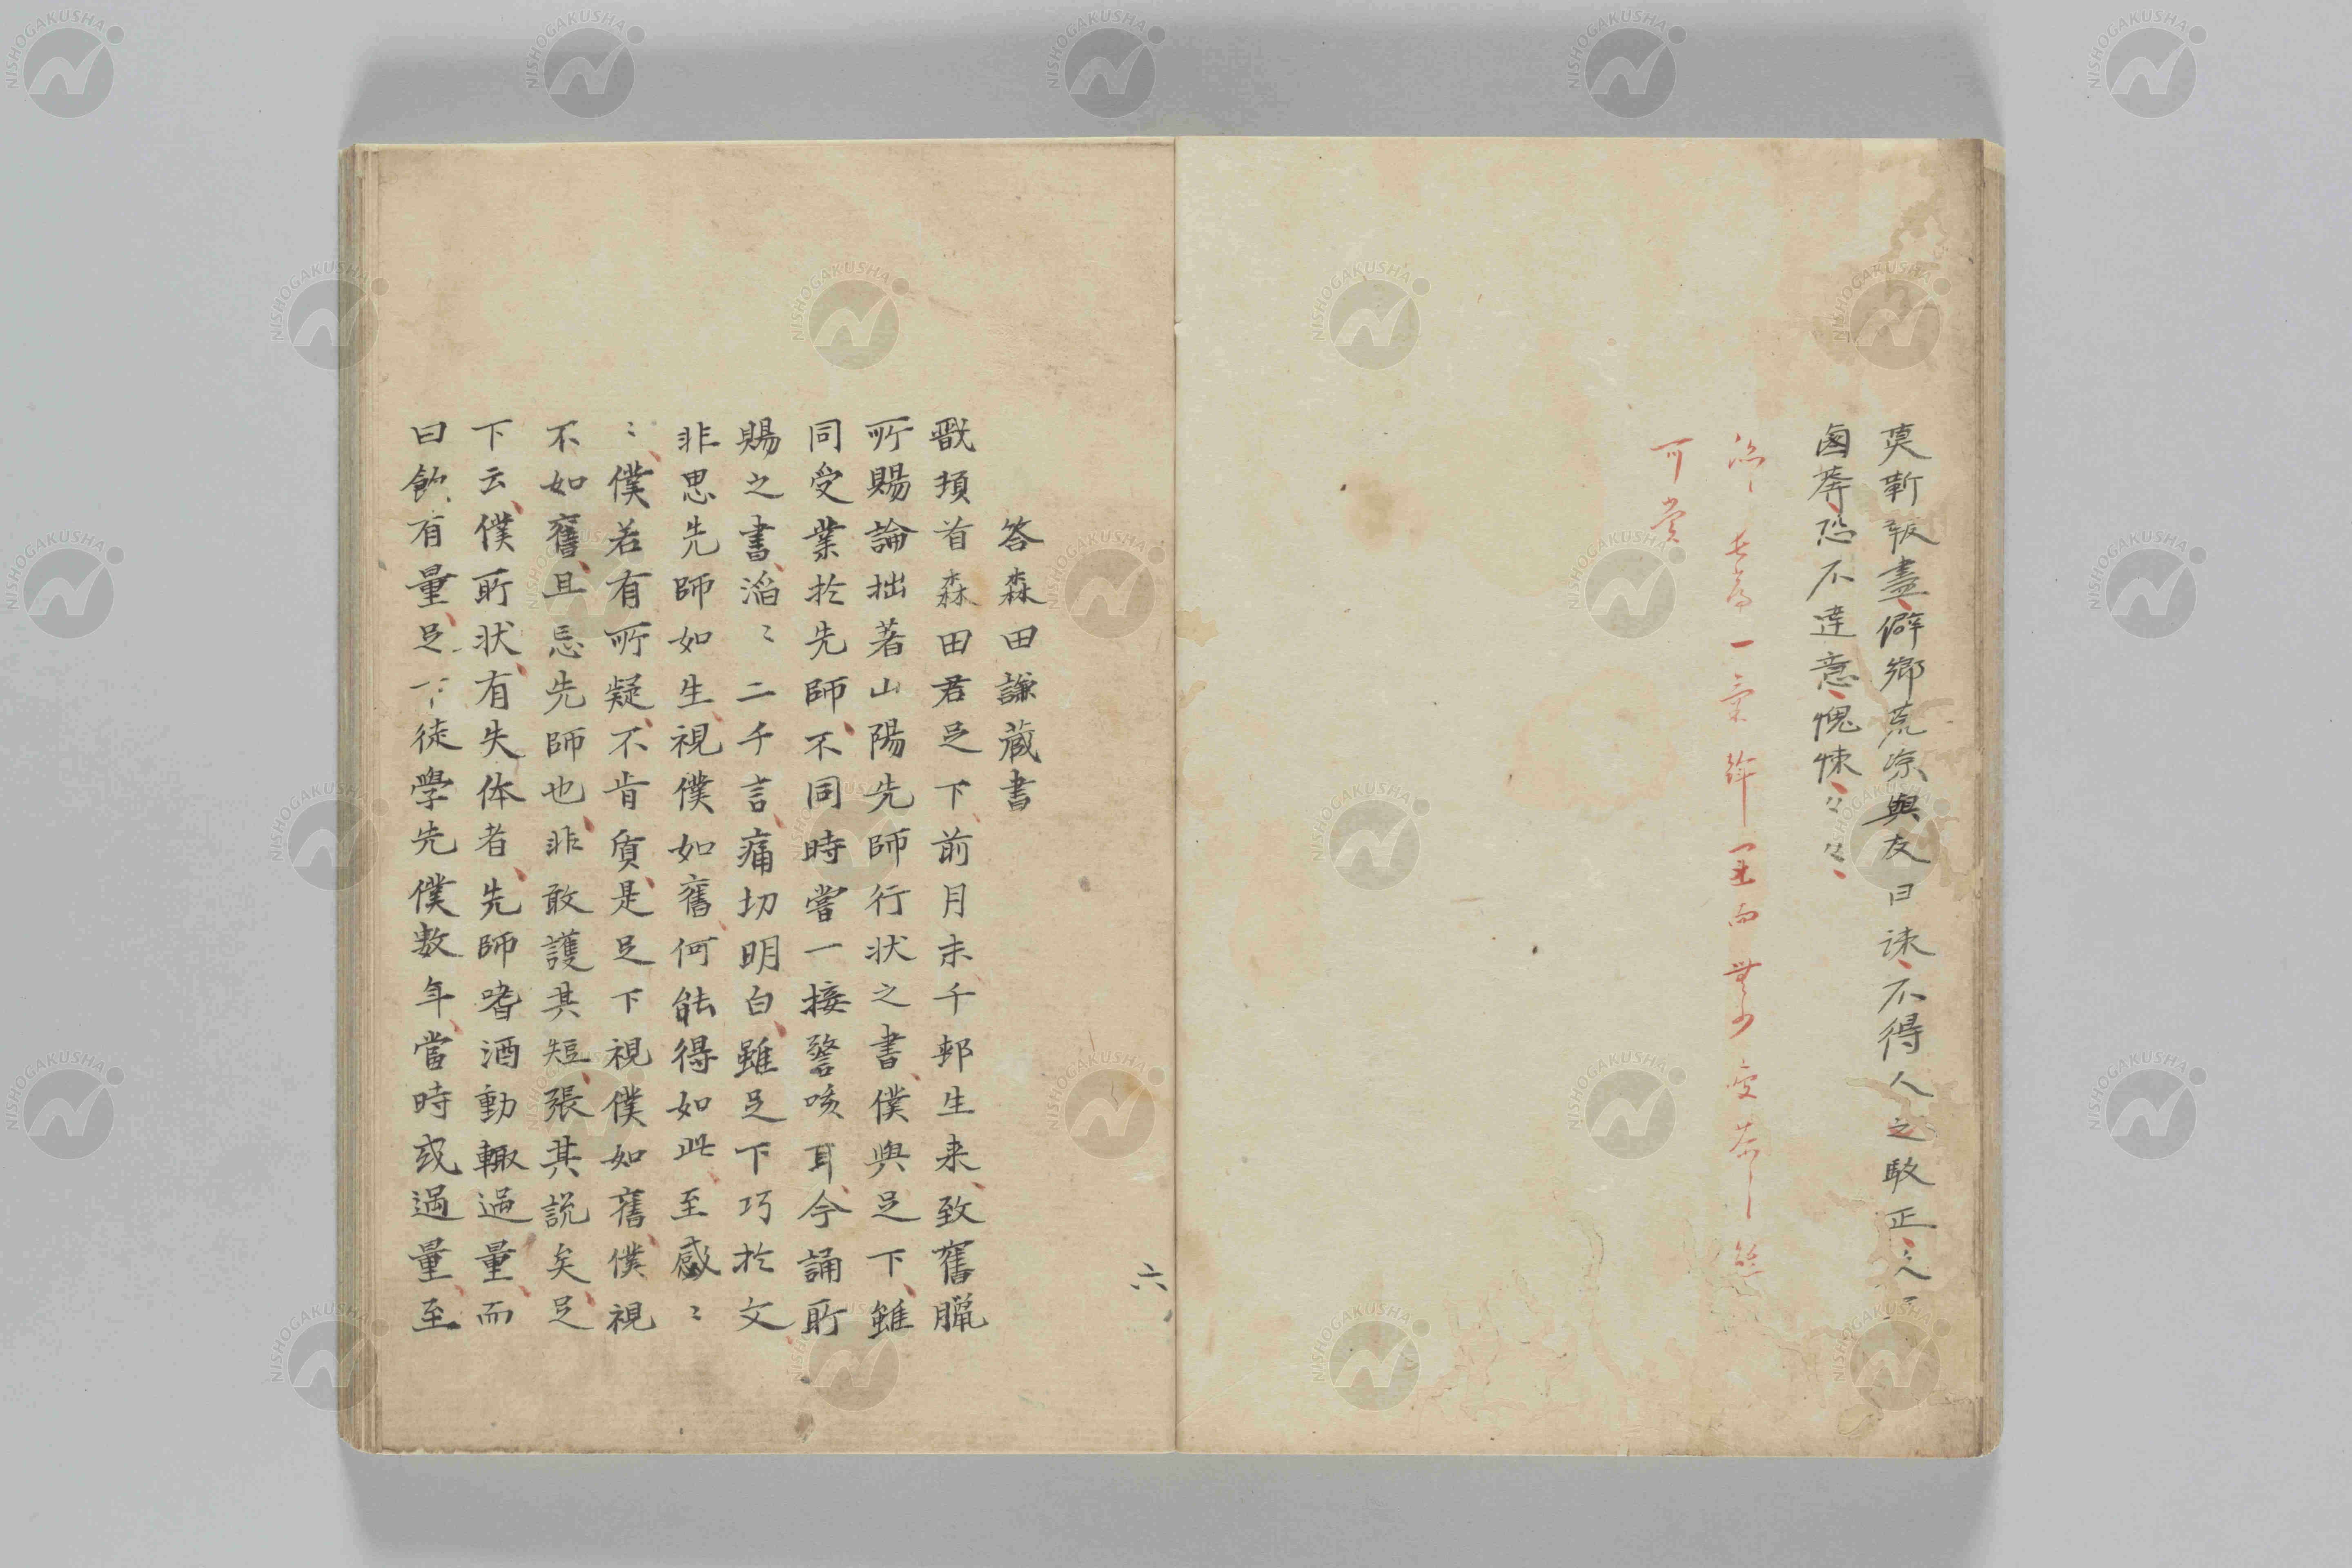 莫斬報盡僻鄉荒凉與友日詠不得人之駁正之人
鹵莽恐不達意愧悚々々
可賞
六
答森田謙蔵書
戩頊首森田君足下前月末千邨生来致舊臘
所賜論拙著山陽先師行状之書僕與足下雖
同受業於先師不同時嘗一接謦咳耳今誦所
賜之書滔〻二千言痛切明白雖足下巧於文
非思先師如生視僕如舊何能得如此至感〻
〻僕若有所疑不肯質是足下視僕如舊僕視
不如舊且忌先師也非敢護其短張其説矣足
下云僕所状有失体者先師嗜酒動輙過量而
曰飲有量足下徒學先僕数年當時或過量至
NISHOGAKUSHA